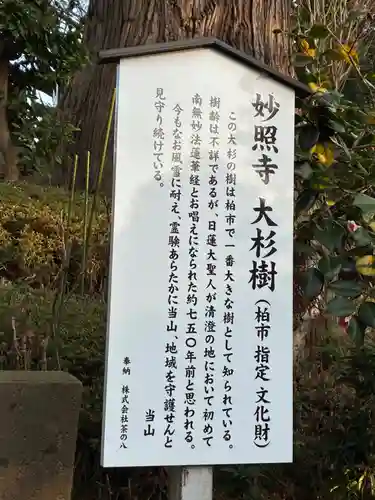 妙照寺 大杉樹(柏市 指定 文化財)
この大杉の樹は柏市で一番大きな樹として知られている。
樹齢は不詳であるが、日蓮大聖人が清澄の地において初めて
南無妙法蓮華経とお唱えになられた約七五〇年前と思われる。
今もなお風雪に耐え、霊験あらたかに当山、地域を守護せんと
見守り続けている。
当山
奉納 株式会社茶の八